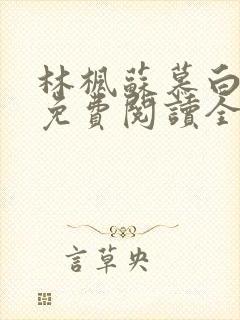 林楓蘇慕白
免費閱讀全
言草央